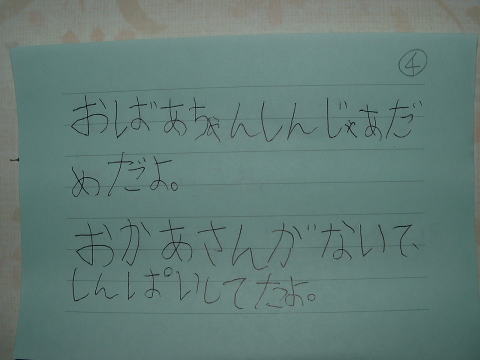 ④
おばあちゃんしんじゃぁだ
めだよ。
おかあさんがないて、
しんぱいしてたよ。